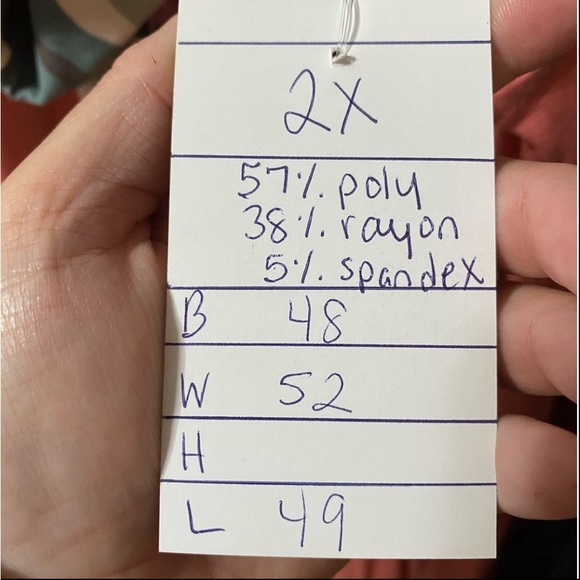 2X
57% poly
38% rayon
5% spandex
B 48
W 52
H
L 49